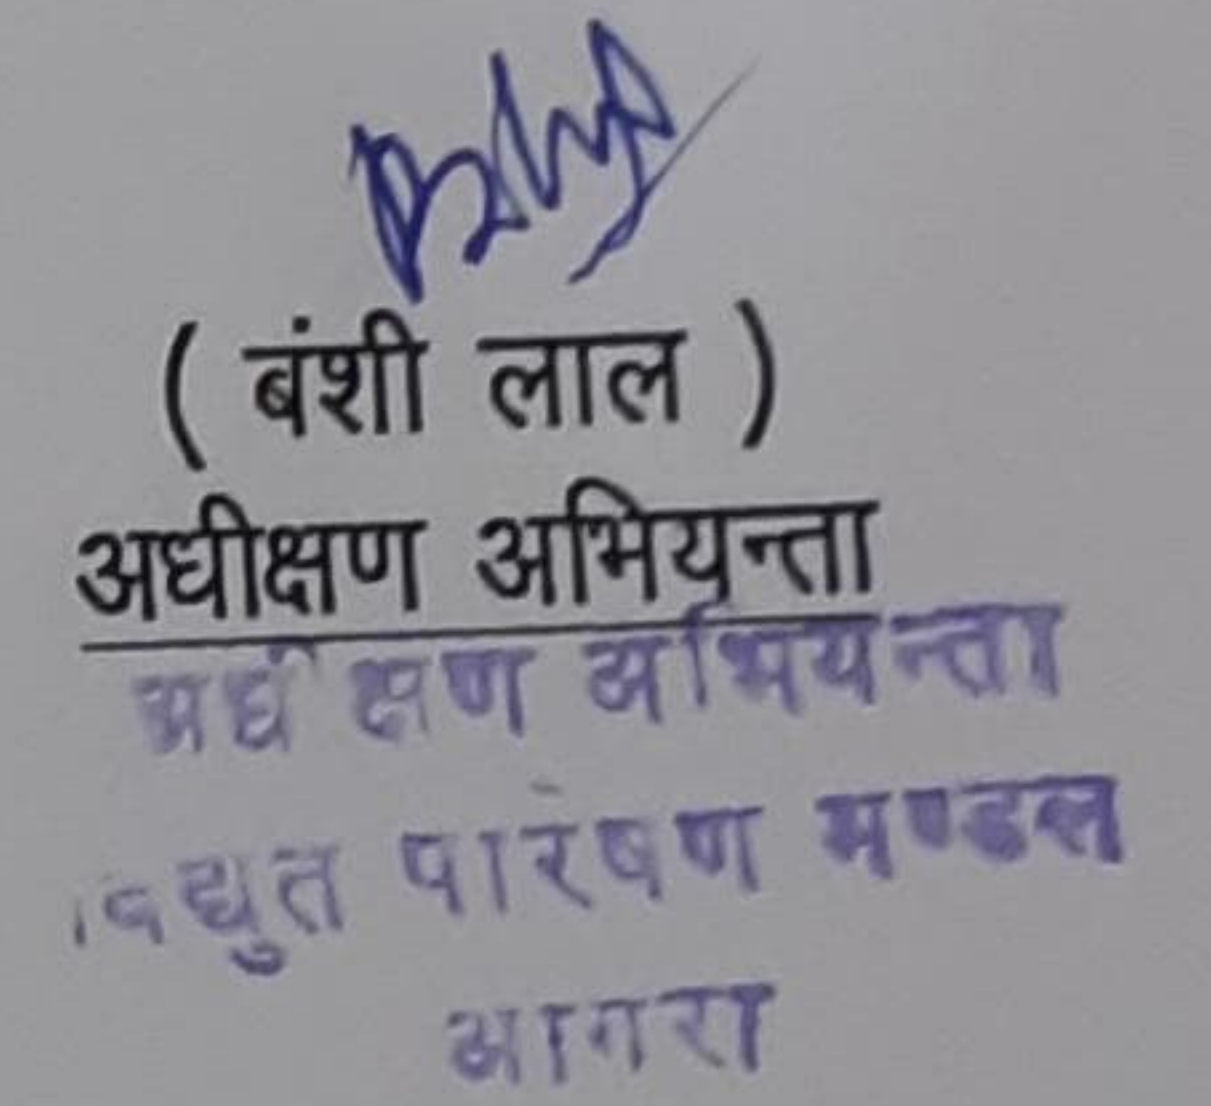 ( बंशी लाल )
अधीक्षण अभियन्ता
अधीक्षण अभियन्ता
विद्युत पारेषण मण्डल
आगरा